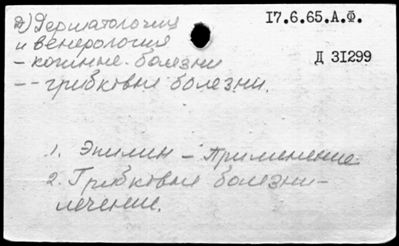 Д) Дерматология
и венерология
- кожные болезни
-- грибковые болезни.
17.6.65.А.Ф.
Д 31299
1. Эпилин - Применение
2. Грибковые болезни-
лечение.